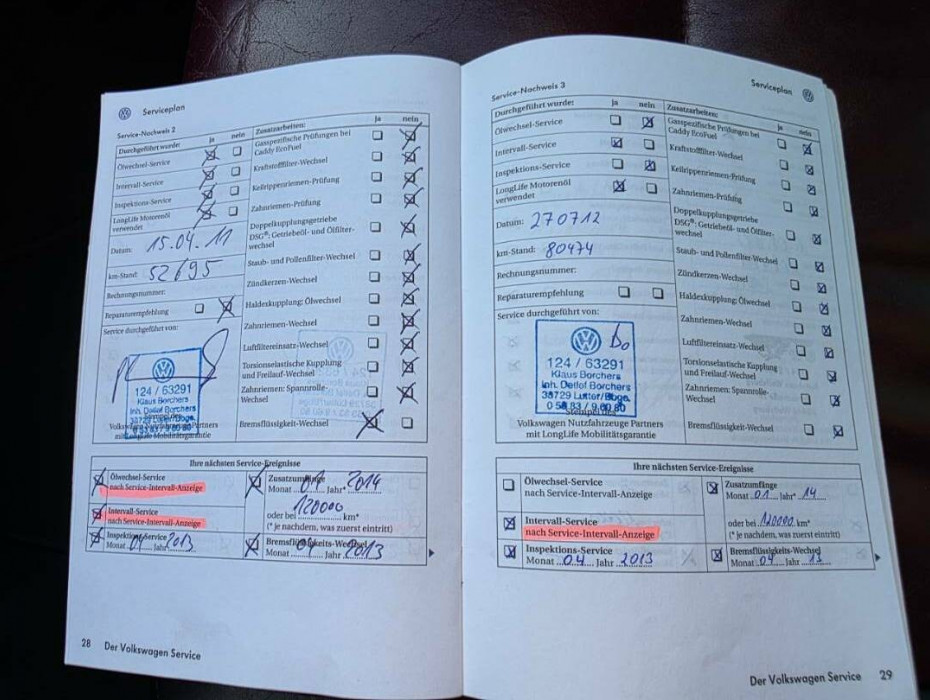 Serviceplan
Service-Nachweis 2
Durchgeführt wurde: ja nein
Ölwechsel-Service
Intervall-Service
Inspektions-Service
LongLife Motorenöl
verwendet
Datum: 15.04.11
km-Stand: 52695
Rechnungsnummer:
Reparaturempfehlung
Service durchgeführt von:
124 / 63291
Klaus Borchers
Inh. Detlof Borchers
38729 Lutter/Bbge.
Volkswagen Nutzfahrzeuge Partners
mit LongLife Mobilitätsgarantie
Zusatzarbeiten: ja nein
Gasspezifische Prüfungen bei
Caddy EcoFuel
Kraftstofffilter-Wechsel
Keilrippenriemen-Prüfung
Zahnriemen-Prüfung
Doppelkupplungsgetriebe
DSG®: Getriebeöl- und Ölfilter-
wechsel
Staub- und Pollenfilter-Wechsel
Zündkerzen-Wechsel
Haldexkupplung: Ölwechsel
Zahnriemen-Wechsel
Luftfiltereinsatz-Wechsel
Torsionselastische Kupplung
und Freilauf-Wechsel
Zahnriemen: Spannrolle-
Wechsel
Bremsflüssigkeit-Wechsel
Ihre nächsten Service-Ereignisse
Ölwechsel-Service
nach Service-Intervall-Anzeige
Zusatzumfänge
Monat 01 Jahr* 2014
Intervall-Service
nach Service-Intervall-Anzeige
oder bei 120000 km*
(* je nachdem, was zuerst eintritt)
Inspektions-Service
Monat Jahr 2013
Bremsflüssigkeits-Wechsel
Monat Jahr 2013
28 Der Volkswagen Service
Serviceplan
Service-Nachweis 3
Durchgeführt wurde: ja nein
Ölwechsel-Service
Intervall-Service
Inspektions-Service
LongLife Motorenöl
verwendet
Datum: 270712
km-Stand: 80474
Rechnungsnummer:
Reparaturempfehlung
Service durchgeführt von:
124 / 63291
Klaus Borchers
Inh. Detlof Borchers
38729 Lutter/Bbge.
0 53 83 / 9 60 80
Stempel des
Volkswagen Nutzfahrzeuge Partners
mit LongLife Mobilitätsgarantie
Zusatzarbeiten: ja nein
Gasspezifische Prüfungen bei
Caddy EcoFuel
Kraftstofffilter-Wechsel
Keilrippenriemen-Prüfung
Zahnriemen-Prüfung
Doppelkupplungsgetriebe
DSG®: Getriebeöl- und Ölfilter-
wechsel
Staub- und Pollenfilter-Wechsel
Zündkerzen-Wechsel
Haldexkupplung: Ölwechsel
Zahnriemen-Wechsel
Luftfiltereinsatz-Wechsel
Torsionselastische Kupplung
und Freilauf-Wechsel
Zahnriemen: Spannrolle-
Wechsel
Bremsflüssigkeit-Wechsel
Ihre nächsten Service-Ereignisse
Ölwechsel-Service
nach Service-Intervall-Anzeige
Zusatzumfänge
Monat 01 Jahr* 14
Intervall-Service
nach Service-Intervall-Anzeige
oder bei 120000 km*
(* je nachdem, was zuerst eintritt)
Inspektions-Service
Monat 04 Jahr 2013
Bremsflüssigkeits-Wechsel
Monat 04 Jahr 13
Der Volkswagen Service 29